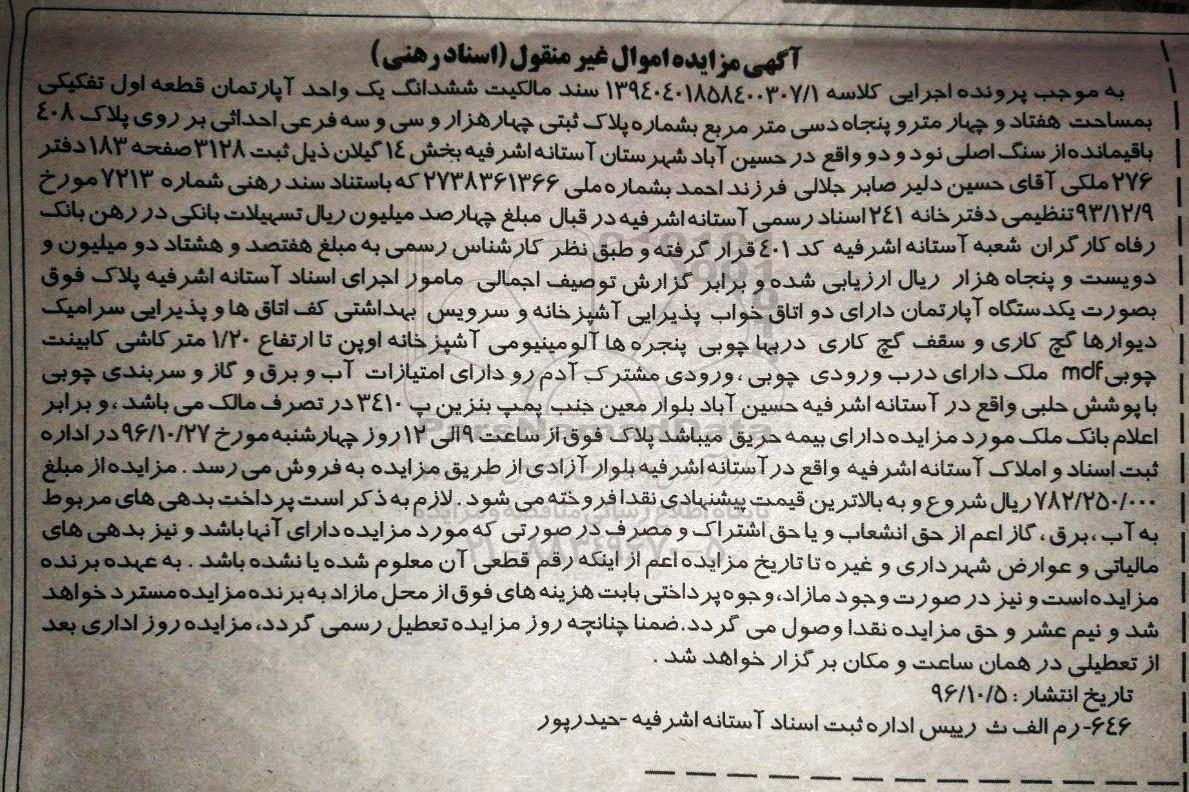 آگهی مزایده اموال غیر منقول (اسناد رهنی)
به موجب پرونده اجرایی کلاسه ۱۳۹٤۰٤۰۱۸۵۸٤۰۰۳۰۷/۱ سند مالکیت ششدانگ یک واحد آپارتمان قطعه اول تفکیکی
بمساحت هفتاد و چهار متر و پنجاه دسی متر مربع بشماره پلاک ثبتی چهار هزار و سی و سه فرعی احداثی بر روی پلاک ٤۰۸
باقیمانده از سنگ اصلی نود و دو واقع در حسین آباد شهرستان آستانه اشرفیه بخش ۱٤ گیلان ذیل ثبت ۳۱۲۸ صفحه ۱۸۳ دفتر
۲۷۶ ملکی آقای حسین دلیر صابر جلالی فرزند احمد بشماره ملی ۲۷۳۸۳۶۱۳۶۶ که باستناد سند رهنی شماره ۷۲۱۳ مورخ
۹۳/۱۲/۹ تنظیمی دفترخانه ۲٤۱ اسناد رسمی آستانه اشرفیه در قبال مبلغ چهارصد میلیون ریال تسهیلات بانکی در رهن بانک
رفاه کارگران شعبه آستانه اشرفیه کد ٤۰۱ قرار گرفته و طبق نظر کارشناس رسمی به مبلغ هفتصد و هشتاد دو میلیون و
دویست و پنجاه هزار ریال ارزیابی شده و برابر گزارش توصیف اجمالی مامور اجرای اسناد آستانه اشرفیه پلاک فوق
بصورت یکدستگاه آپارتمان دارای دو اتاق خواب پذیرایی آشپزخانه و سرویس بهداشتی کف اتاق ها و پذیرایی سرامیک
دیوارها گچ کاری و سقف گچ کاری دربها چوبی پنجره ها آلومینیومی آشپزخانه اوپن تا ارتفاع ۱/۲۰ متر کاشی کابینت
چوبی mdf ملک دارای درب ورودی چوبی ،ورودی مشترک آدم رو دارای امتیازات آب و برق و گاز و سربندی چوبی
با پوشش حلبی واقع در آستانه اشرفیه حسین آباد بلوار معین جنب پمپ بنزین پ ۳٤۱۰ در تصرف مالک می باشد ،و برابر
اعلام بانک ملک مورد مزایده دارای بیمه حریق میباشد پلاک فوق از ساعت ۹الی ۱۲ روز چهارشنبه مورخ ۹۶/۱۰/۲۷ در اداره
ثبت اسناد و املاک آستانه اشرفیه واقع در آستانه اشرفیه بلوار آزادی از طریق مزایده به فروش می رسد . مزایده از مبلغ
۷۸۲/۲۵۰/۰۰۰ ریال شروع و به بالاترین قیمت پیشنهادی نقدا فروخته می شود . لازم به ذکر است پرداخت بدهی های مربوط
به آب ،برق ، گاز اعم از حق انشعاب و یا حق اشتراک و مصرف در صورتی که مورد مزایده دارای آنها باشد و نیز بدهی های
مالیاتی و عوارض شهرداری و غیره تا تاریخ مزایده اعم از اینکه رقم قطعی آن معلوم شده یا نشده باشد . به عهده برنده
مزایده است و نیز در صورت وجود مازاد، وجوه پرداختی بابت هزینه های فوق از محل مازاد به برنده مزایده مسترد خواهد
شد و نیم عشر و حق مزایده نقدا وصول می گردد. ضمنا چنانچه روز مزایده تعطیل رسمی گردد، مزایده روز اداری بعد
از تعطیلی در همان ساعت و مکان برگزار خواهد شد .
تاریخ انتشار : ۹۶/۱۰/۵
۶٤۶-رم الف ث رییس اداره ثبت اسناد آستانه اشرفیه -حیدرپور
ParsNamadData